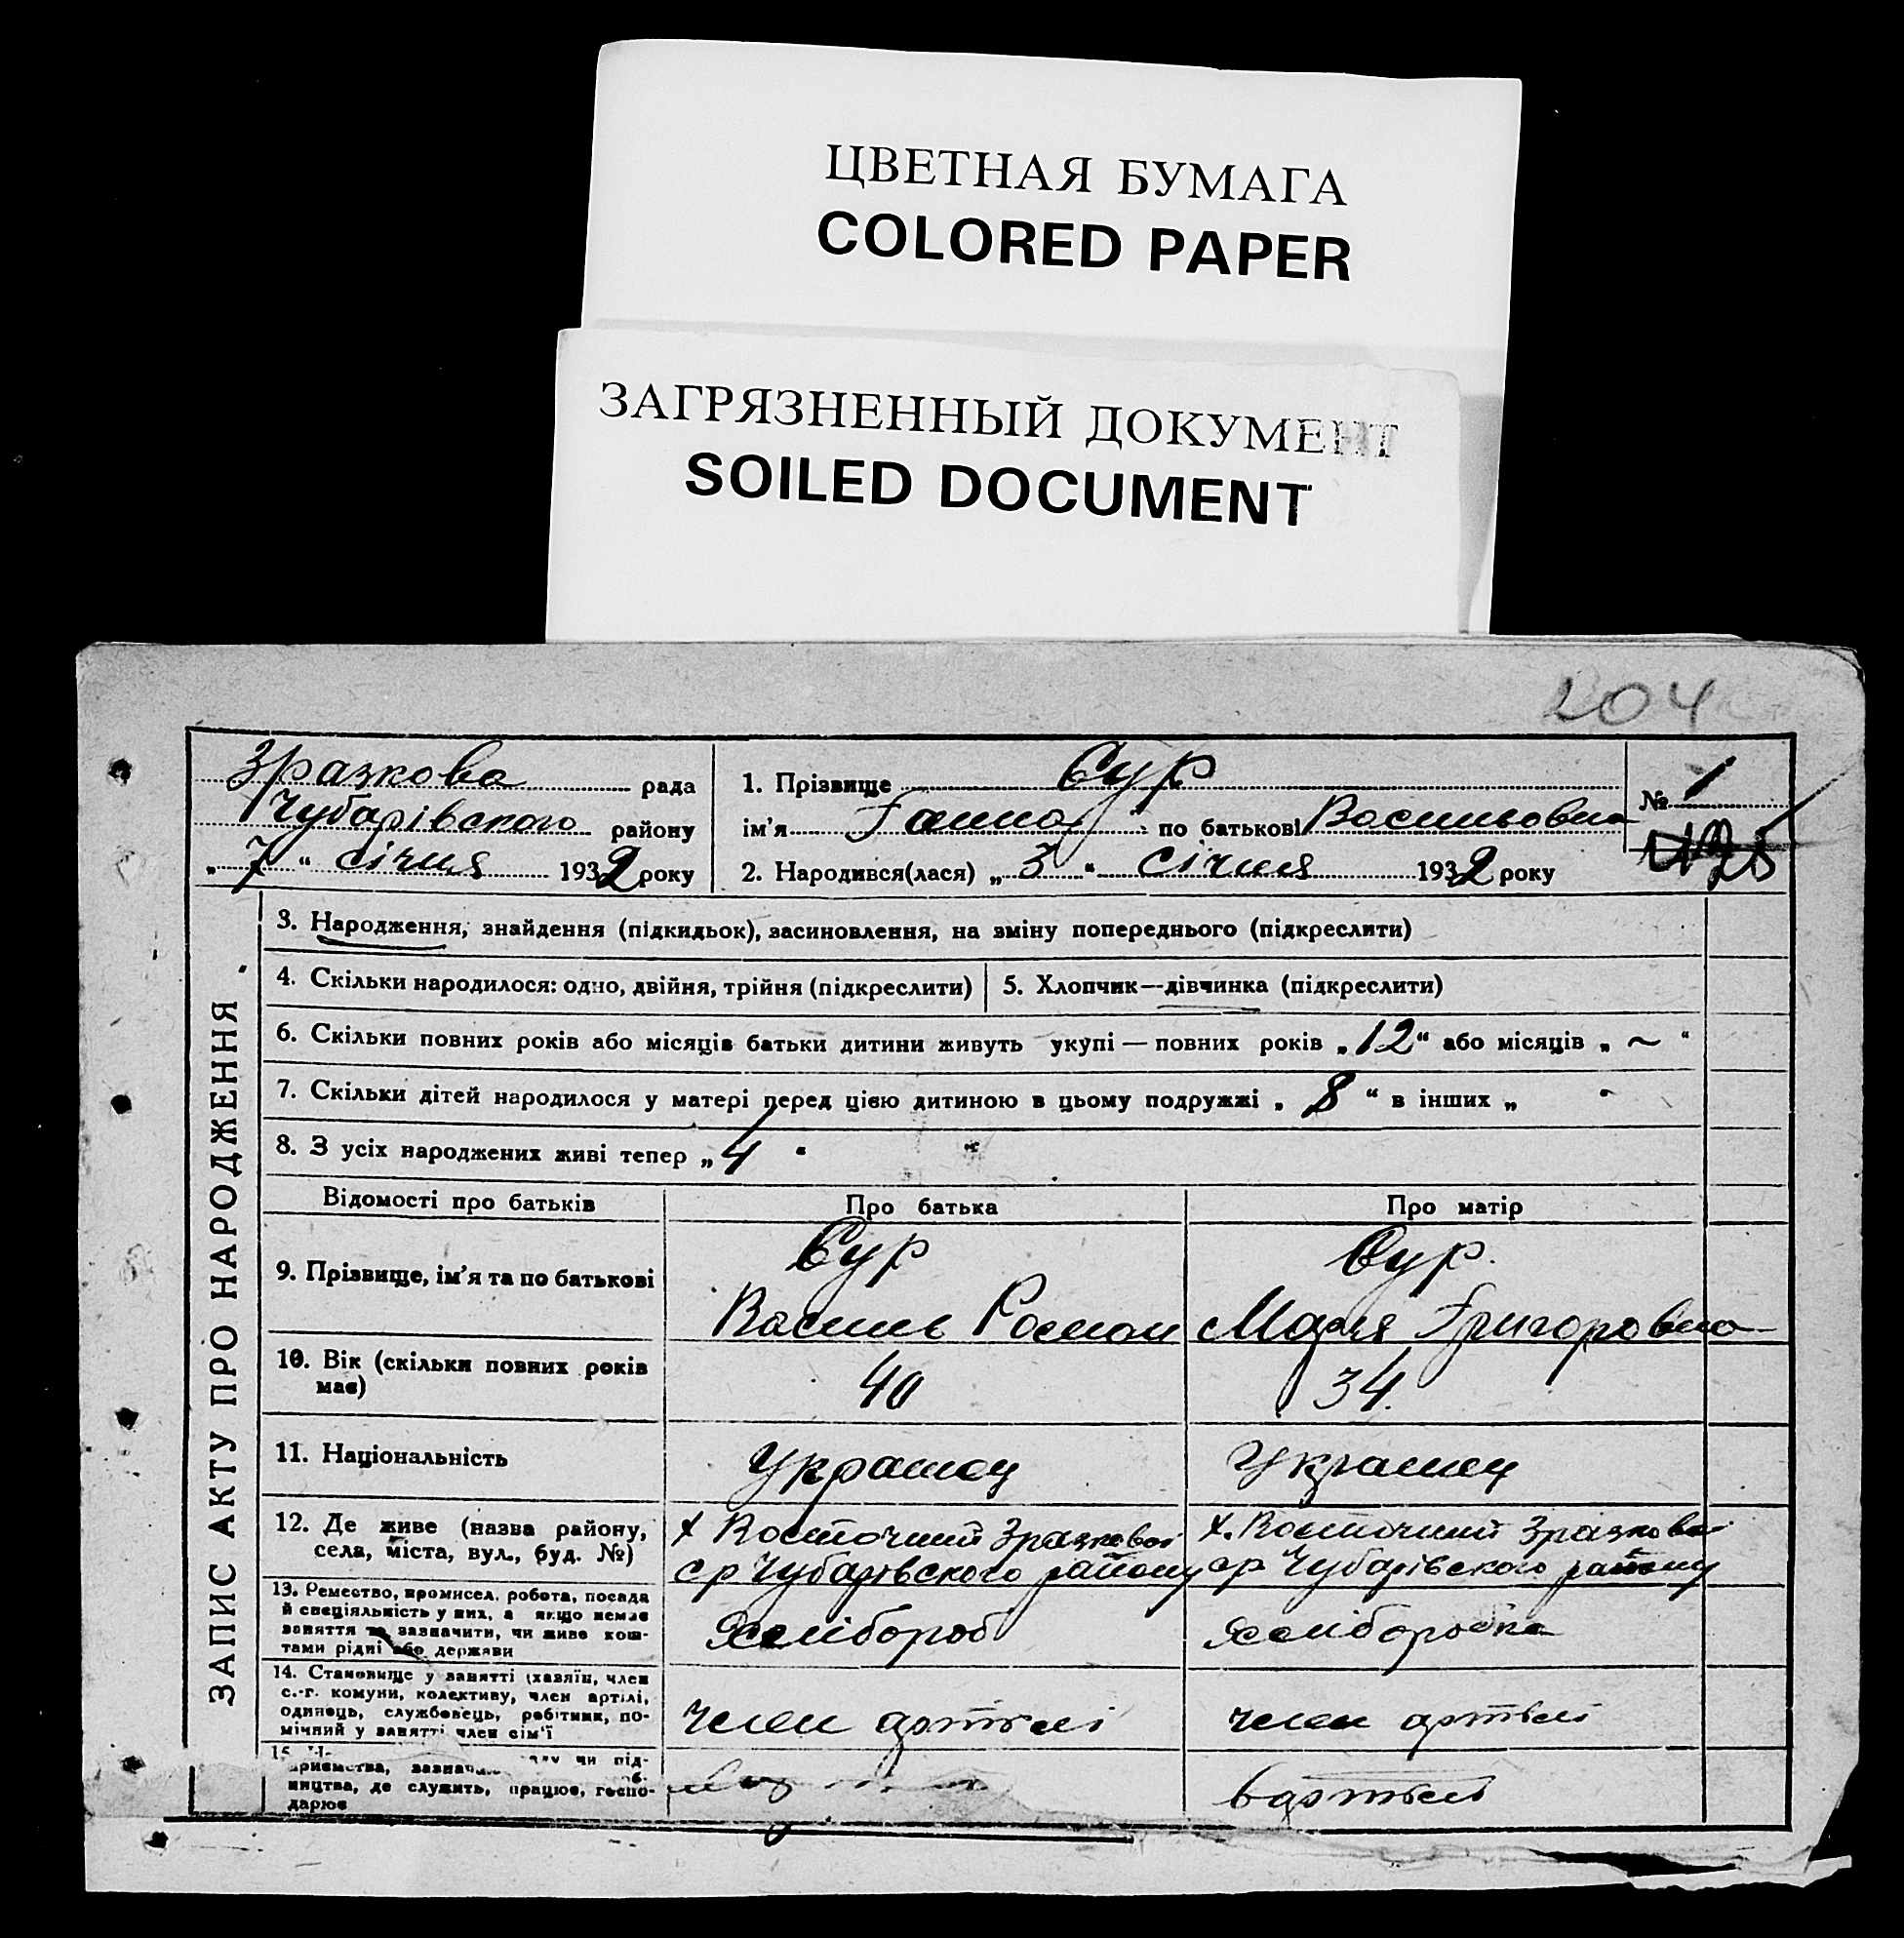 ЦВЕТНАЯ БУМАГА
COLORED PAPER
ЗАГРЯЗНЕННЫЙ ДОКУМЕНТ
SOILED DOCUMENT
204
Зразкова рада
Чубарівського району
„ 7 “ січня 1932 року
1. Прізвище Сур
ім'я Ганна по батькові Васильовна
2. Народився(лася) „ 3 “ січня 1932 року
№ 1
ЗАПИС АКТУ ПРО НАРОДЖЕННЯ
3. Народження, знайдення (підкидьок), засиновлення, на зміну попереднього (підкреслити)
4. Скільки народилося: одно, двійня, трійня (підкреслити)
5. Хлопчик—дівчинка (підкреслити)
6. Скільки повних років або місяців батьки дитини живуть укупі — повних років „ 12 “ або місяців „ ~ “
7. Скільки дітей народилося у матері перед цією дитиною в цьому подружжі „ 8 “ в інших „ “
8. З усіх народжених живі тепер „ 4 “
Відомості про батьків
Про батька
Про матір
9. Прізвище, ім'я та по батькові
Сур
Василь Роман
Сур.
Марія Григоровна
10. Вік (скільки повних років
має)
40
34.
11. Національність
Украінец
Украінец
12. Де живе (назва району,
села, міста, вул., буд. №)
х Восточний Зразкової
ср Чубарівського району
х. Восточний Зразкової
ср Чубарівського району
13. Ремество, промисел, робота, посада
й спеціяльність у них, а якщо немає
заняття то зазначити, чи живе кош-
тами рідні або держави
Хлібороб
Хліборобка
14. Становище у занятті (хазяїн, член
с.-г. комуни, колективу, член артілі,
одинець, службовець, робітник, по-
мічний у занятті член сім'ї
член артелі
член артелі
15.
чи під-
приємства,
ництва, де служить, працює, госпо-
дарює
в артелі